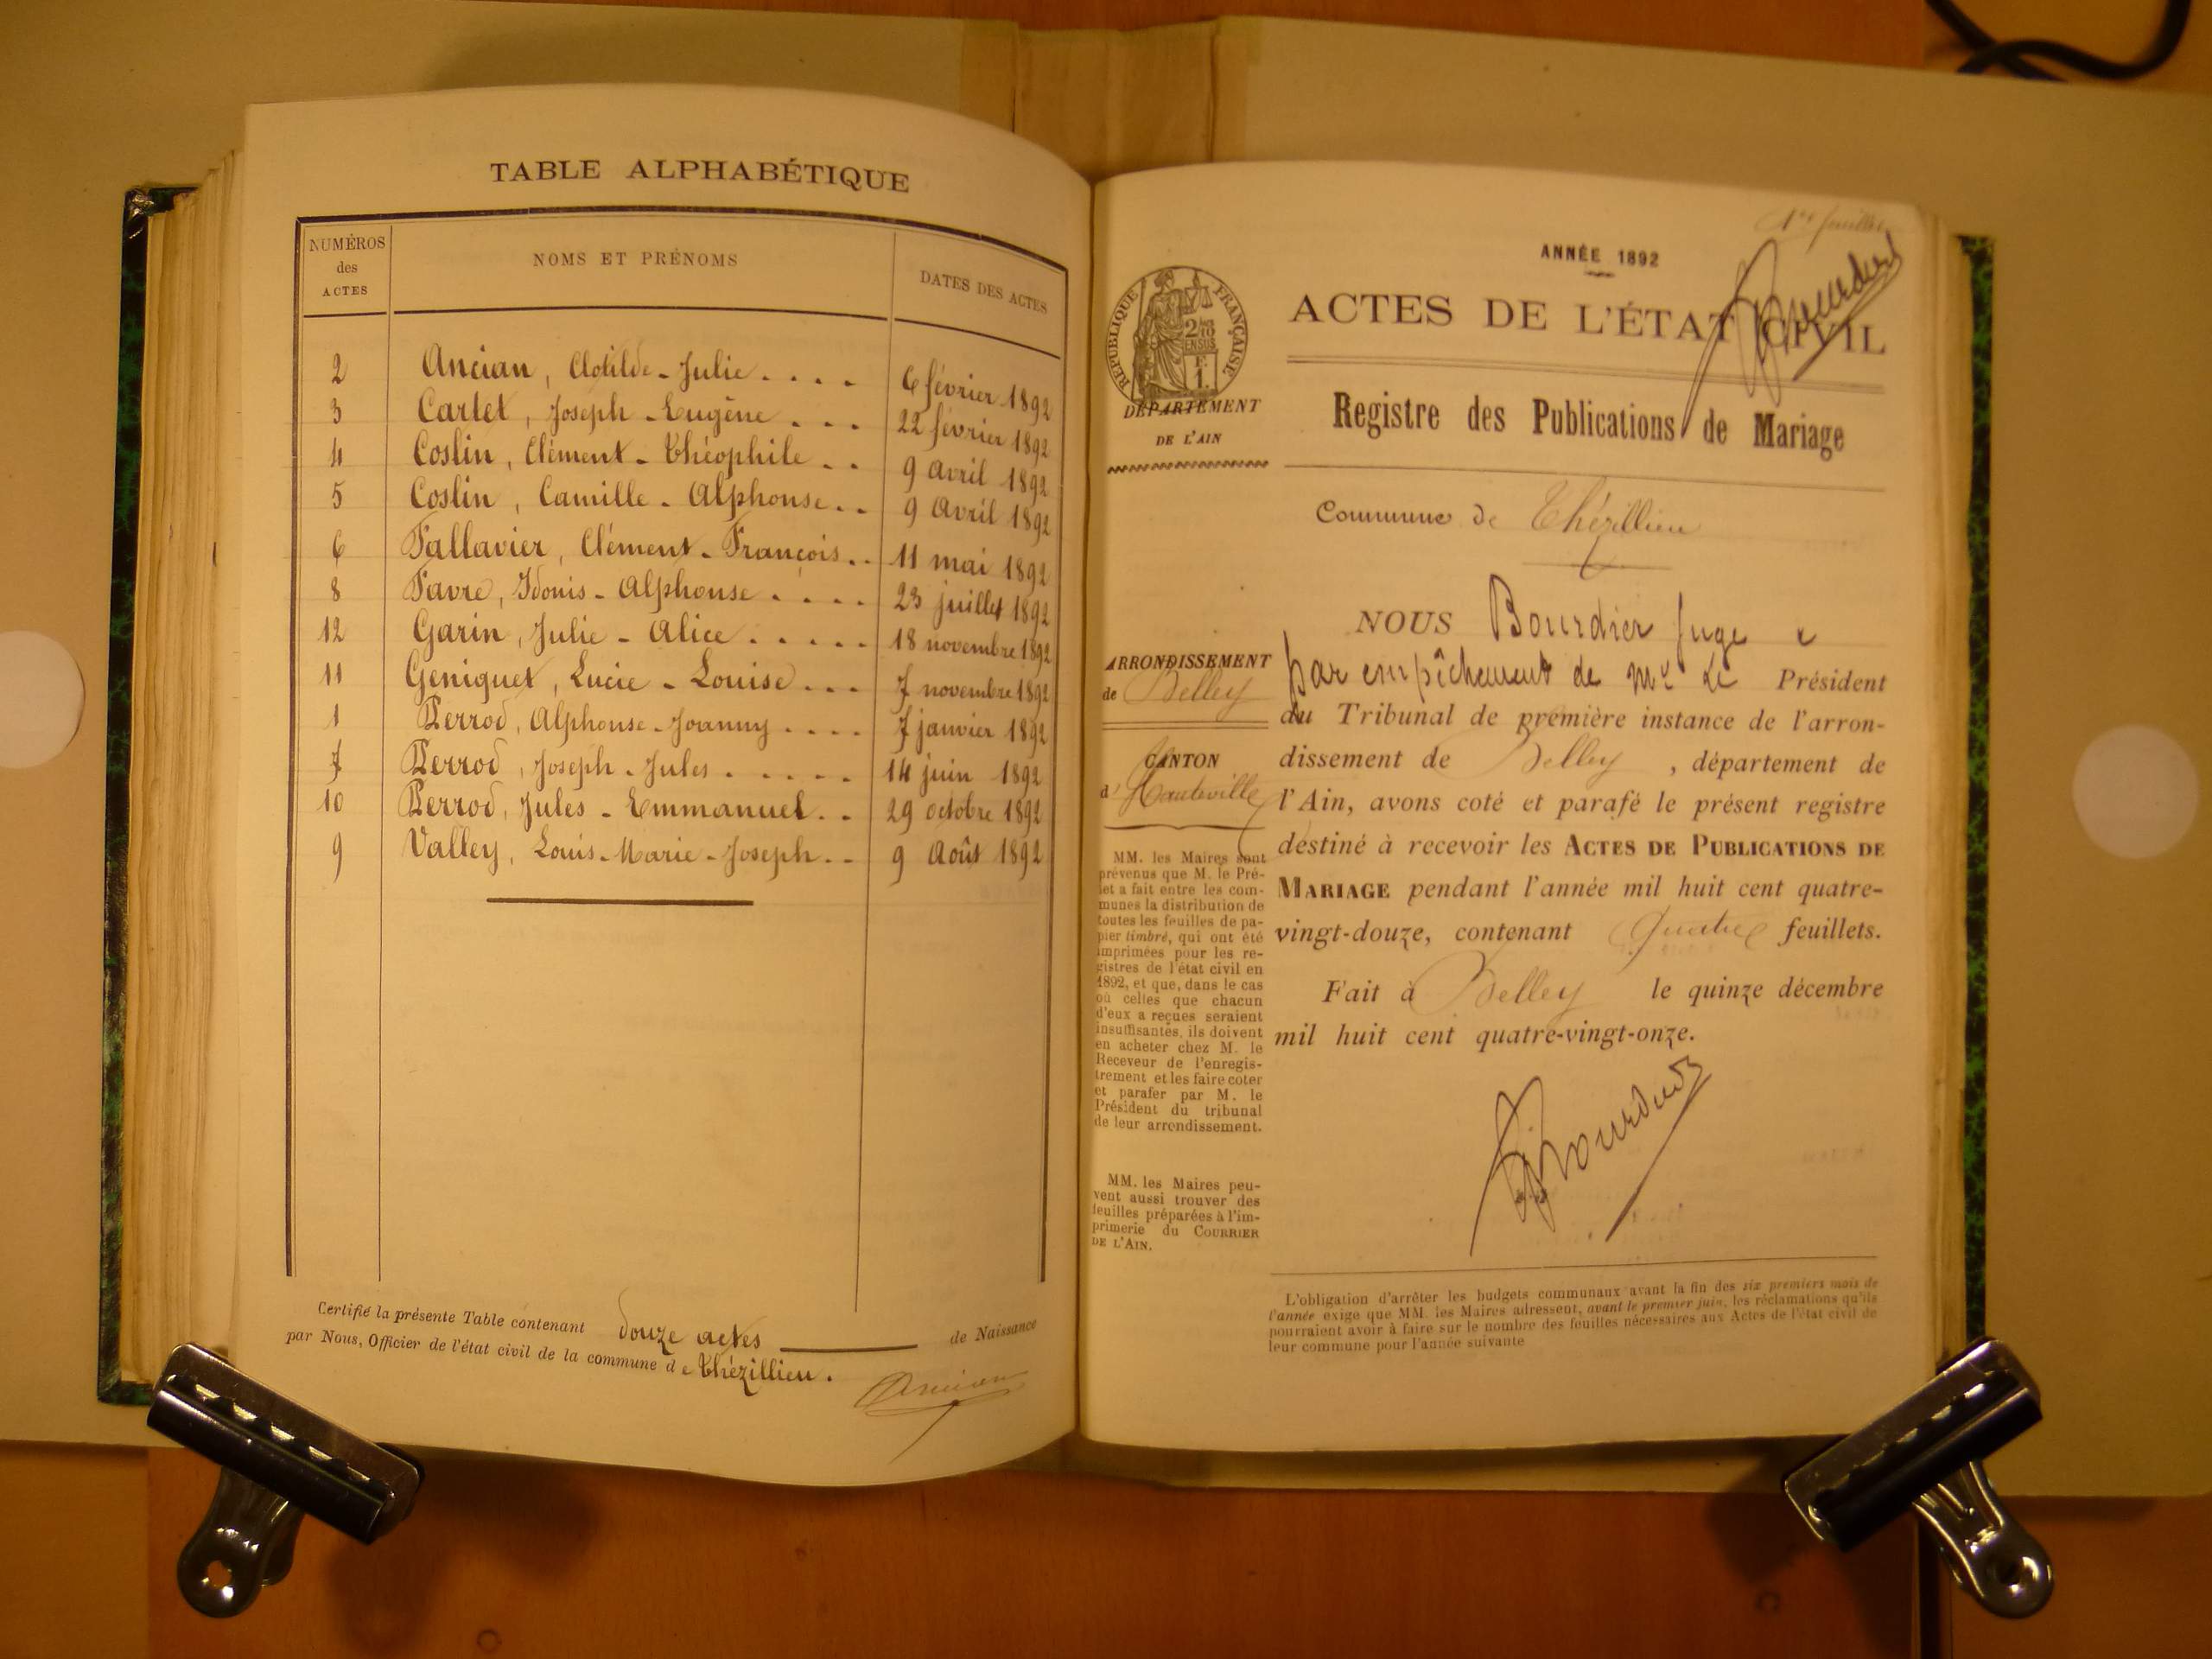 TABLE ALPHABÉTIQUE
NUMÉROS des ACTES NOMS ET PRÉNOMS DATES DES ACTES
2 Ancian, Clotilde-Julie.... 6 février 1892
3 Cartet, Joseph-Eugène... 22 février 1892
4 Coslin, Clément-Théophile.. 9 avril 1892
5 Coslin, Camille-Alphonse.. 9 Avril 1892
6 Fallavier, Clément-François.. 11 mai 1892
8 Favre, Idonis-Alphonse..... 23 juillet 1892
12 Garin, Julie-Alice..... 18 novembre 1892
11 Geniquet, Lucie-Louise... 7 novembre 1892
1 Perrod, Alphonse-Joanny.... 7 janvier 1892
7 Perrod, Joseph-Jules..... 14 juin 1892
10 Perrod, Jules-Emmanuel.. 29 octobre 1892
9 Valley, Louis-Marie-Joseph.. 9 Août 1892
Certifié la présente Table contenant douze actes de Naissance
par Nous, Officier de l'état civil de la commune de Thézillieu.
Ancian
1er feuillet
ANNÉE 1892
ACTES DE L'ÉTAT CIVIL
Bourdier
RÉPUBLIQUE FRANÇAISE
2/10 EN SUS
F. 1.
DÉPARTEMENT
DE L'AIN
Registre des Publications de Mariage
Commune de Thézillieu
ARRONDISSEMENT
de Belley
CANTON
d'Hauteville
MM. les Maires sont
prévenus que M. le Pré-
fet a fait entre les com-
munes la distribution de
toutes les feuilles de pa-
pier timbré, qui ont été
imprimées pour les re-
gistres de l'état civil en
1892, et que, dans le cas
où celles que chacun
d'eux a reçues seraient
insuffisantes, ils doivent
en acheter chez M. le
Receveur de l'enregis-
trement et les faire coter
et parafer par M. le
Président du tribunal
de leur arrondissement.
MM. les Maires peu-
vent aussi trouver des
feuilles préparées à l'im-
primerie du COURRIER
DE L'AIN.
NOUS Bourdier Juge
par empêchement de Mr Le Président
du Tribunal de première instance de l'arron-
dissement de Belley, département de
l'Ain, avons coté et parafé le présent registre
destiné à recevoir les ACTES DE PUBLICATIONS DE
MARIAGE pendant l'année mil huit cent quatre-
vingt-douze, contenant Quatre feuillets.
Fait à Belley le quinze décembre
mil huit cent quatre-vingt-onze.
Bourdier
L'obligation d'arrêter les budgets communaux avant la fin des six premiers mois de
l'année exige que MM. les Maires adressent, avant le premier juin, les réclamations qu'ils
pourraient avoir à faire sur le nombre des feuilles nécessaires aux Actes de l'état civil de
leur commune pour l'année suivante